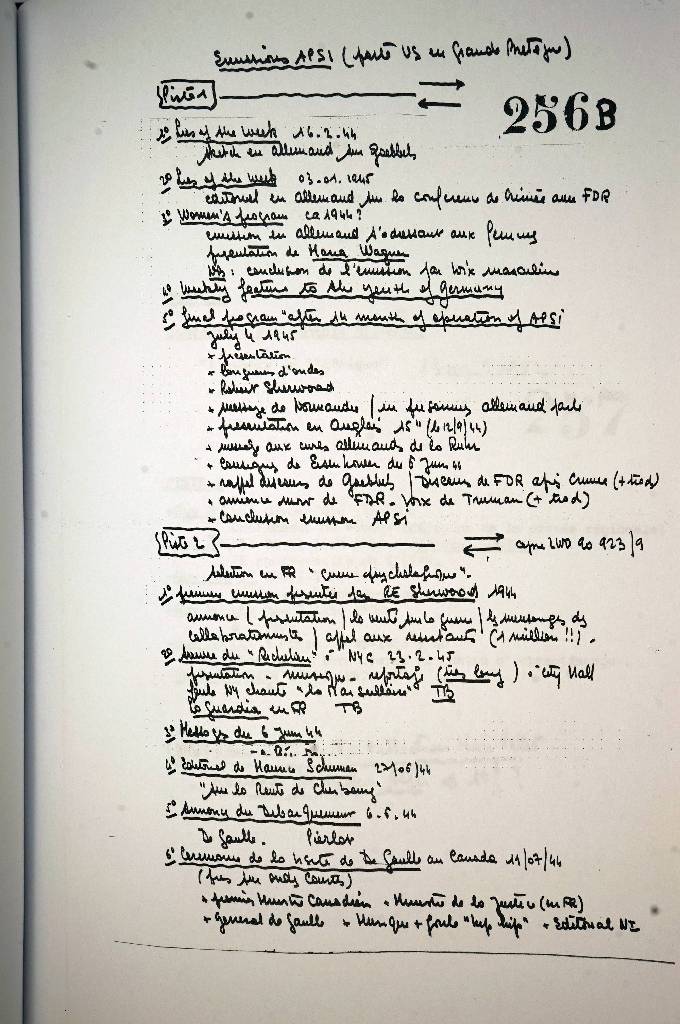 Emissions APSI (poste US en Grande Bretagne)
Piste 1
256B
1° Lies of the week 16.2.44
sketch en allemand sur Goebbels
2° Lies of the week 03.01.1945
editoriel en Allemand sur la conference de Crimée avec FDR
3° Women's program ca 1944?
emission en allemand s'adressant aux femmes
presentation de Hana Wagner
NB : conclusion de l'emission par voix masculine
4° Weekly feature to the youth of Germany
5° final program "after 14 month of operation of APSI
July 4 1945
+ presentation
+ longueurs d'ondes
+ Robert Sherwood
+ message de Normandie / un prisonnier allemand parle
+ presentation en Anglais 15" (le 12/9/44)
+ aux cures allemands de la Ruhr
+ consignes de Eisenhower du 6 Juin 44
+ rappel discours de Goebbels / Discours de FDR après Crimee (+ trad)
+ annonce mort de FDR - Voix de Truman (+ trad)
+ conclusion emission APSI
Piste 2
copie 2WD 90 923/9
selection en FR "guerre psychologique".
1° premiere emission presentée par RE Sherwood 1944
annonce / presentation / la verité sur la guerre / les mensonges des
collaborationnistes / appel aux resistants (1 million !!) .
2° du "Richelieu" à NYC 23.2.45
presentation - musique - reportage (très long) à City Hall
foule NY chante "la Marseillaise" TB
La Guardia en FR TB
3° Message du 6 Juin 44
4° Editoriel de Maurice Schuman 27/06/44
"Sur la Route de Cherbourg"
5° Annonce du Debarquement 6.6.44
De Gaulle. Pierlot
6° Ceremonie de la visite de De Gaulle au Canada 11/07/44
(pris sur ondes courtes)
+ premier Ministre Canadien + Ministre de la Justice (en FR)
+ General de Gaulle + Musique + foule "hip hip" + Editorial